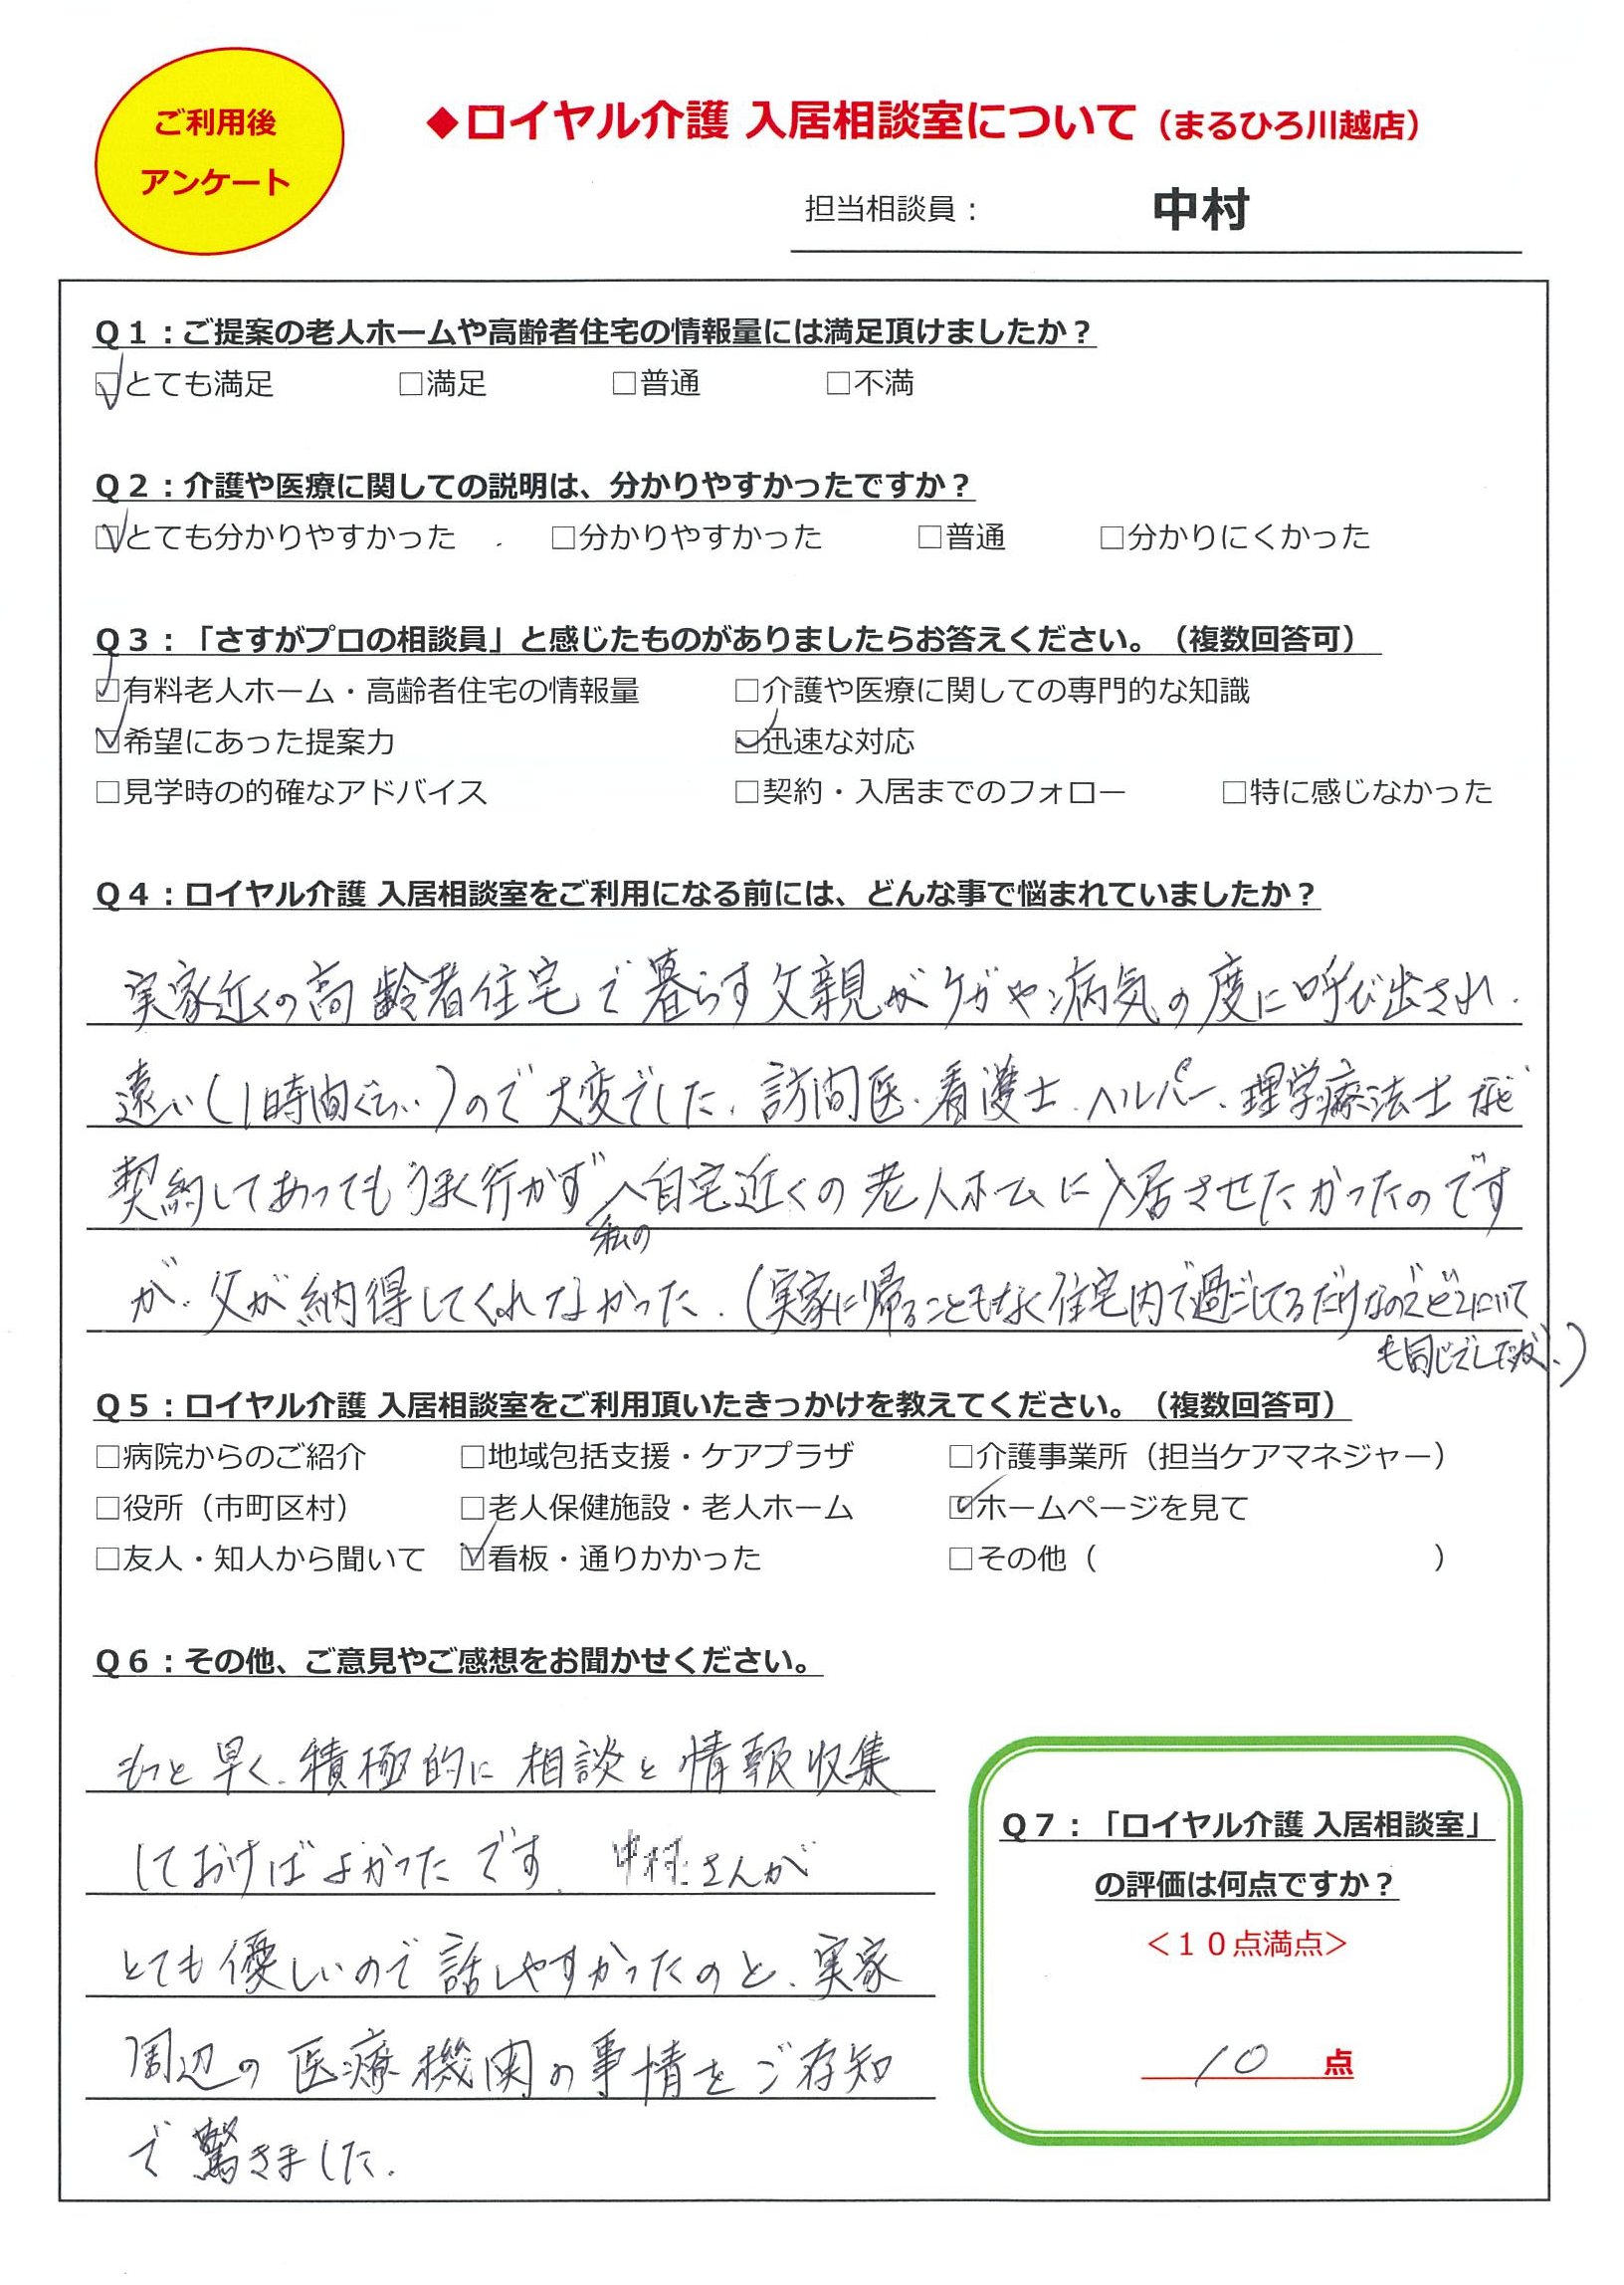 ご利用後
アンケート
◆ロイヤル介護 入居相談室について（まるひろ川越店）
担当相談員： 中村
Ｑ１：ご提案の老人ホームや高齢者住宅の情報量には満足頂けましたか？
☑とても満足 □満足 □普通 □不満
Ｑ２：介護や医療に関しての説明は、分かりやすかったですか？
☑とても分かりやすかった □分かりやすかった □普通 □分かりにくかった
Ｑ３：「さすがプロの相談員」と感じたものがありましたらお答えください。（複数回答可）
☑有料老人ホーム・高齢者住宅の情報量 □介護や医療に関しての専門的な知識
☑希望にあった提案力 ☑迅速な対応
□見学時の的確なアドバイス □契約・入居までのフォロー □特に感じなかった
Ｑ４：ロイヤル介護 入居相談室をご利用になる前には、どんな事で悩まれていましたか？
実家近くの高齢者住宅で暮らす父親がケガや病気の度に呼び出され、
遠い(1時間ぐらい)ので大変でした。訪問医、看護士、ヘルパー、理学療法士など
契約してあっても上手く行かず、私の自宅近くの老人ホームに入居させたかったのです
が、父が納得してくれなかった。(実家に帰ることもなく住宅内で過ごしてるだけなのでどこにいて
も同じでしたが…)
Ｑ５：ロイヤル介護 入居相談室をご利用頂いたきっかけを教えてください。（複数回答可）
□病院からのご紹介 □地域包括支援・ケアプラザ □介護事業所（担当ケアマネジャー）
□役所（市町区村） □老人保健施設・老人ホーム ☑ホームページを見て
□友人・知人から聞いて ☑看板・通りかかった □その他（ ）
Ｑ６：その他、ご意見やご感想をお聞かせください。
もっと早く、積極的に相談と情報収集
しておけばよかったです。中村さんが
とても優しいので話しやすかったのと、実家
周辺の医療機関の事情をご存知
で驚きました。
Ｑ７：「ロイヤル介護 入居相談室」
の評価は何点ですか？
＜１０点満点＞
10 点